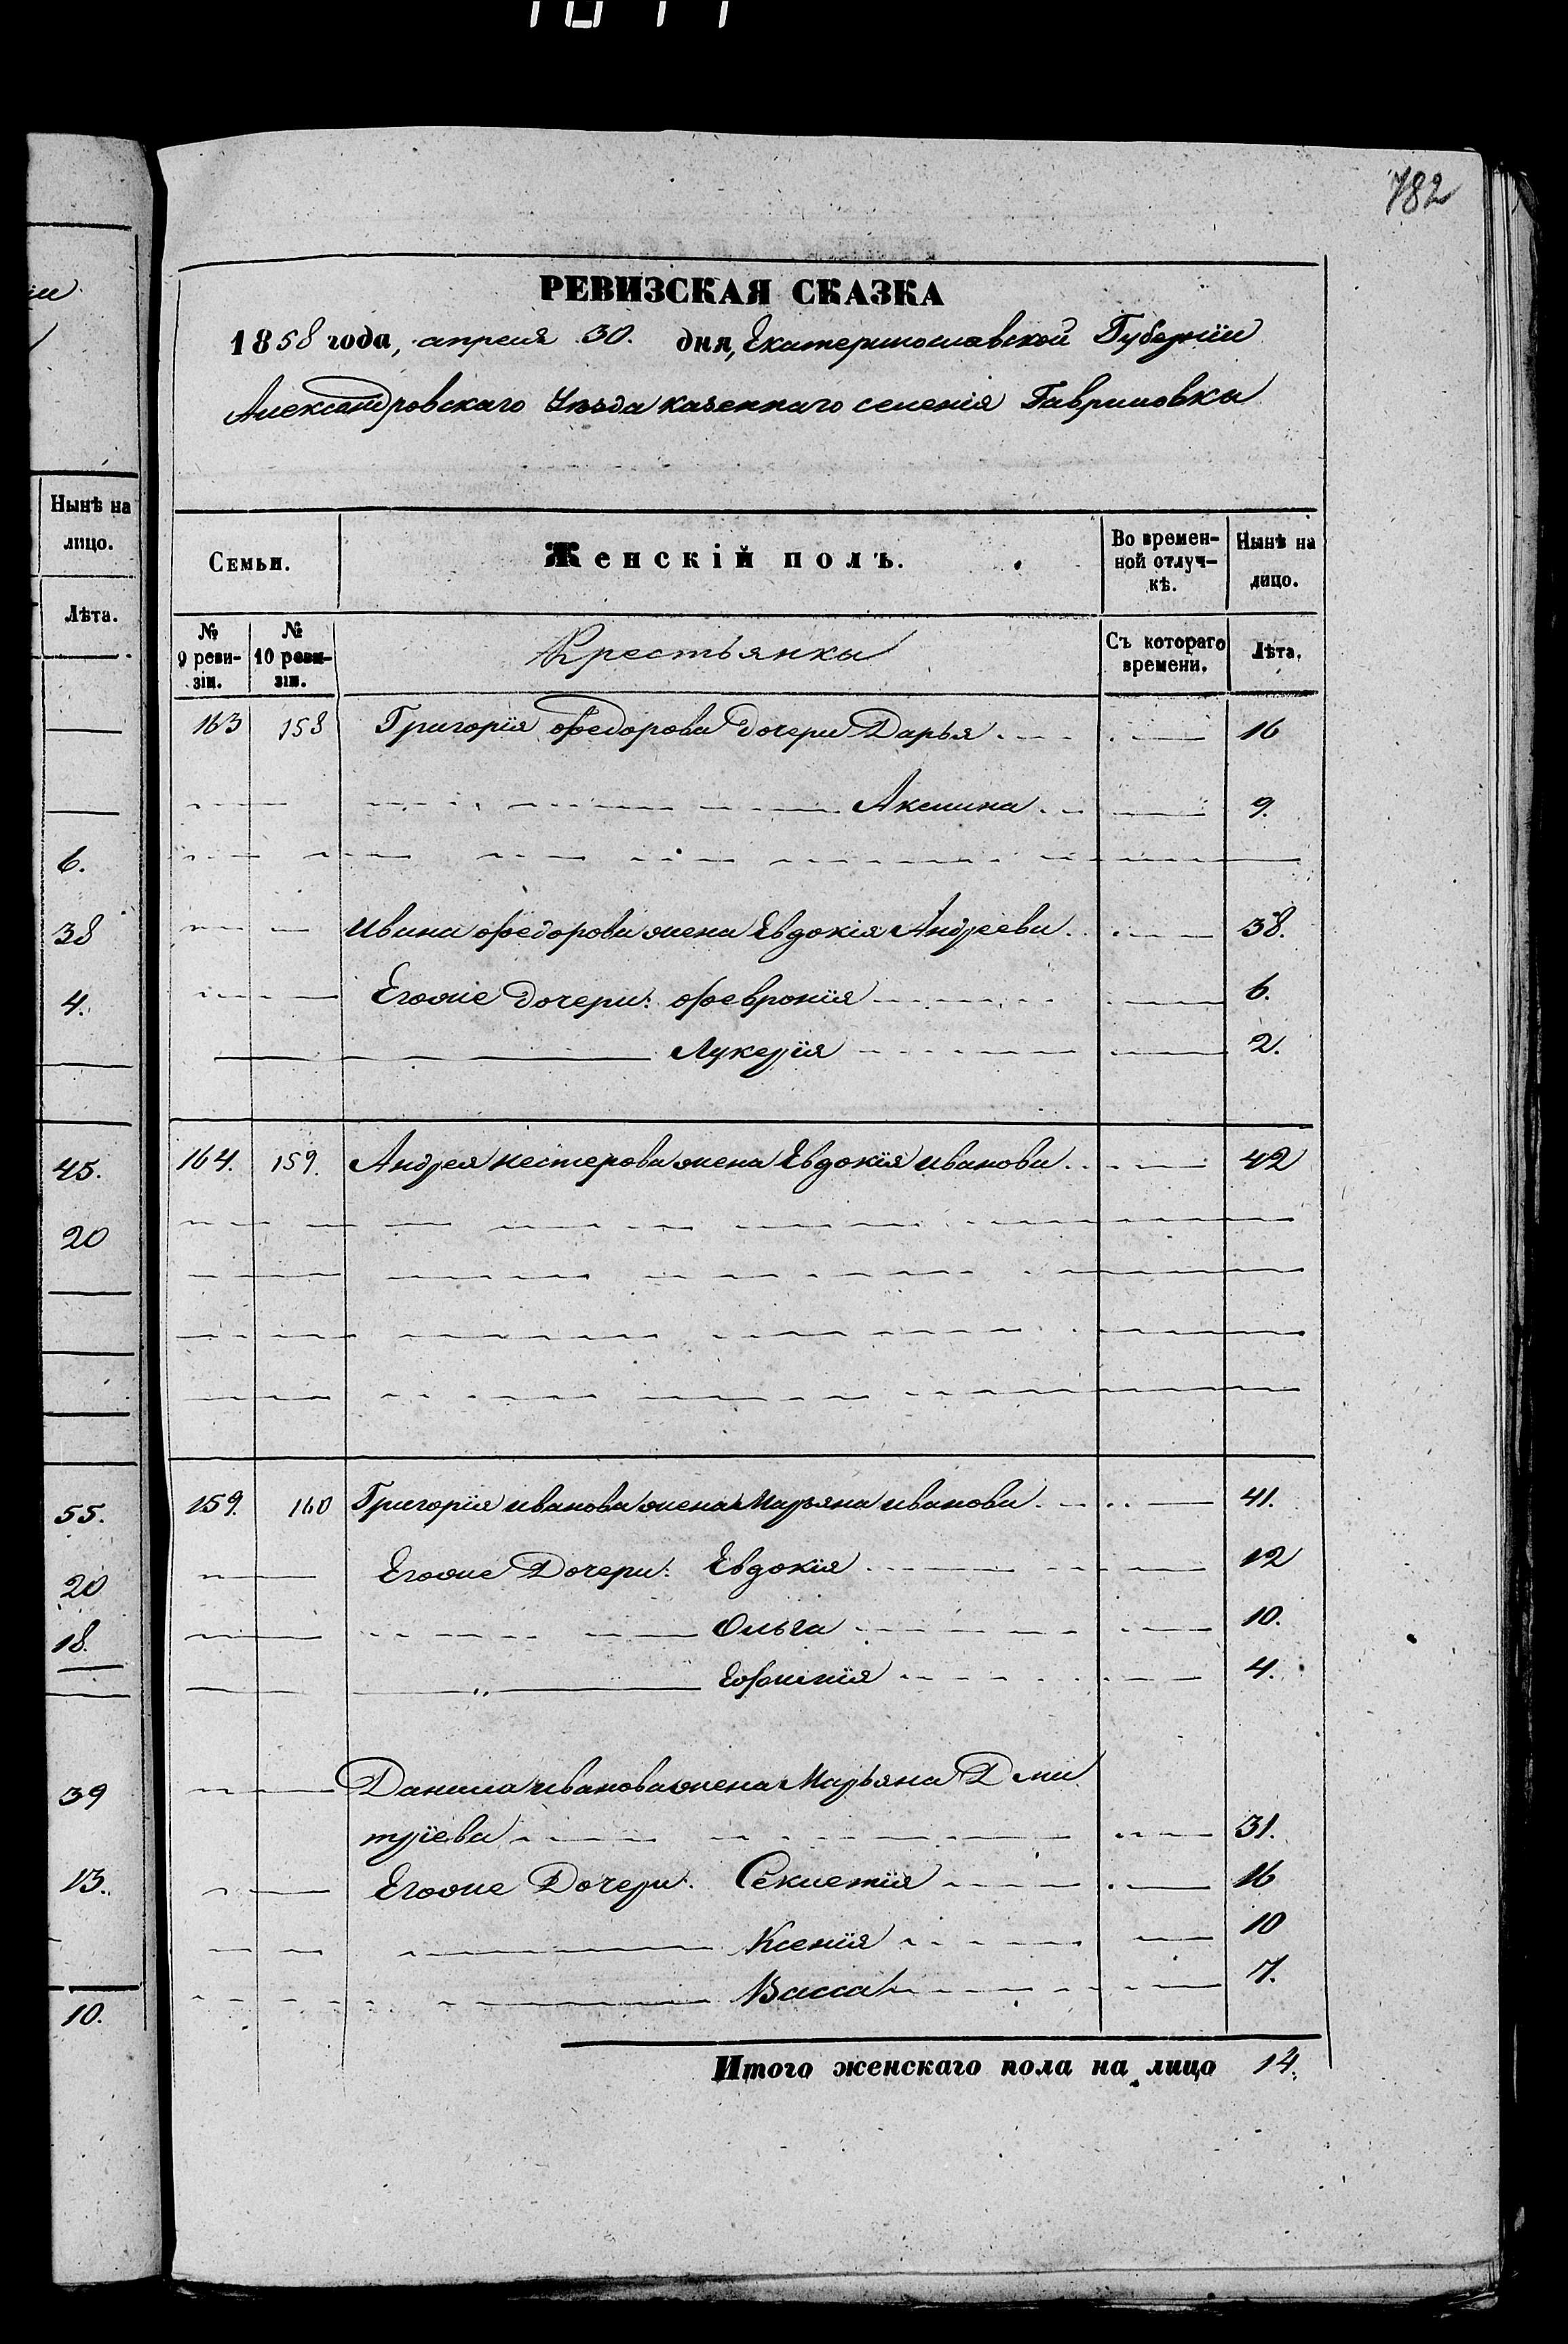 782
РЕВИЗСКАЯ СКАЗКА
1858 года, апреля 30. дня, Екатеринославской Губернїи
Александровскаго Уѣзда казеннаго селенія Гавриловки
Семьи. Женскій полъ. Во временной отлучкѣ. Нынѣ на лицо.
№ 9 ревизіи. № 10 ревизіи. Крестьянки Съ котораго времени. Лѣта.
163 158 Григорїя Федорова дочери Дарья 16
Акилина 9.
Ивана Федорова жена Евдокія Андреева 38.
Егоже дочери: Февронїя 6.
Лукерїя 2.
164. 159. Андрея Нестерова жена Евдокїя Иванова 42
159. 160 Григорїя Иванова жена Марьяна Иванова 41.
Егоже Дочери: Евдокїя 12
Ольга 10.
Ефимїя 4.
Данила Иванова жена Марьяна Дми
трїева 31.
Егоже Дочери: 16
Ксенїя 10
Васса 7.
Итого женскаго пола на лицо 14.
Нынѣ на
лицо.
Лѣта.
6.
38
4.
45.
20
55.
20
18.
39
13.
10.